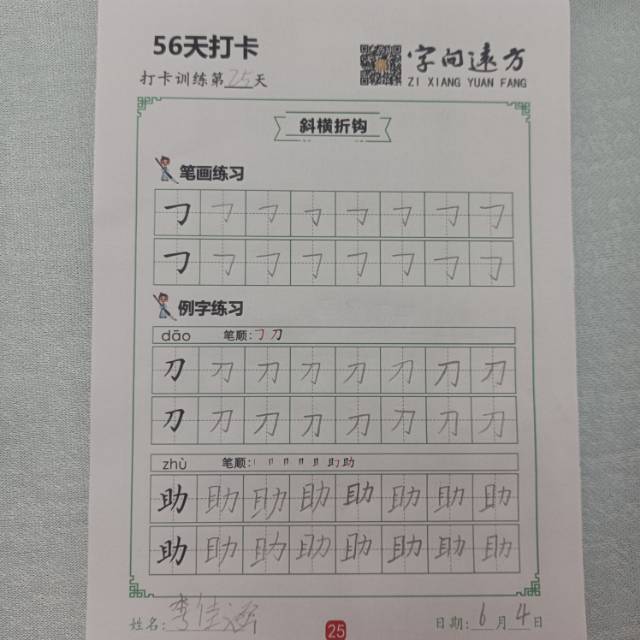 56天打卡
字向远方
打卡训练第25天
ZI XIANG YUAN FANG
斜横折钩
笔画练习
㇆ ㇆ ㇆ ㇆ ㇆ ㇆ ㇆ ㇆
㇆ ㇆ ㇆ ㇆ ㇆ ㇆ ㇆ ㇆
例字练习
dāo 笔顺: ㇆ 刀
刀 刀 刀 刀 刀 刀 刀 刀
刀 刀 刀 刀 刀 刀 刀 刀
zhù 笔顺:
助 助 助 助 助 助 助 助
助 助 助 助 助 助 助 助
姓名: 李佳
25
日期: 6月4日